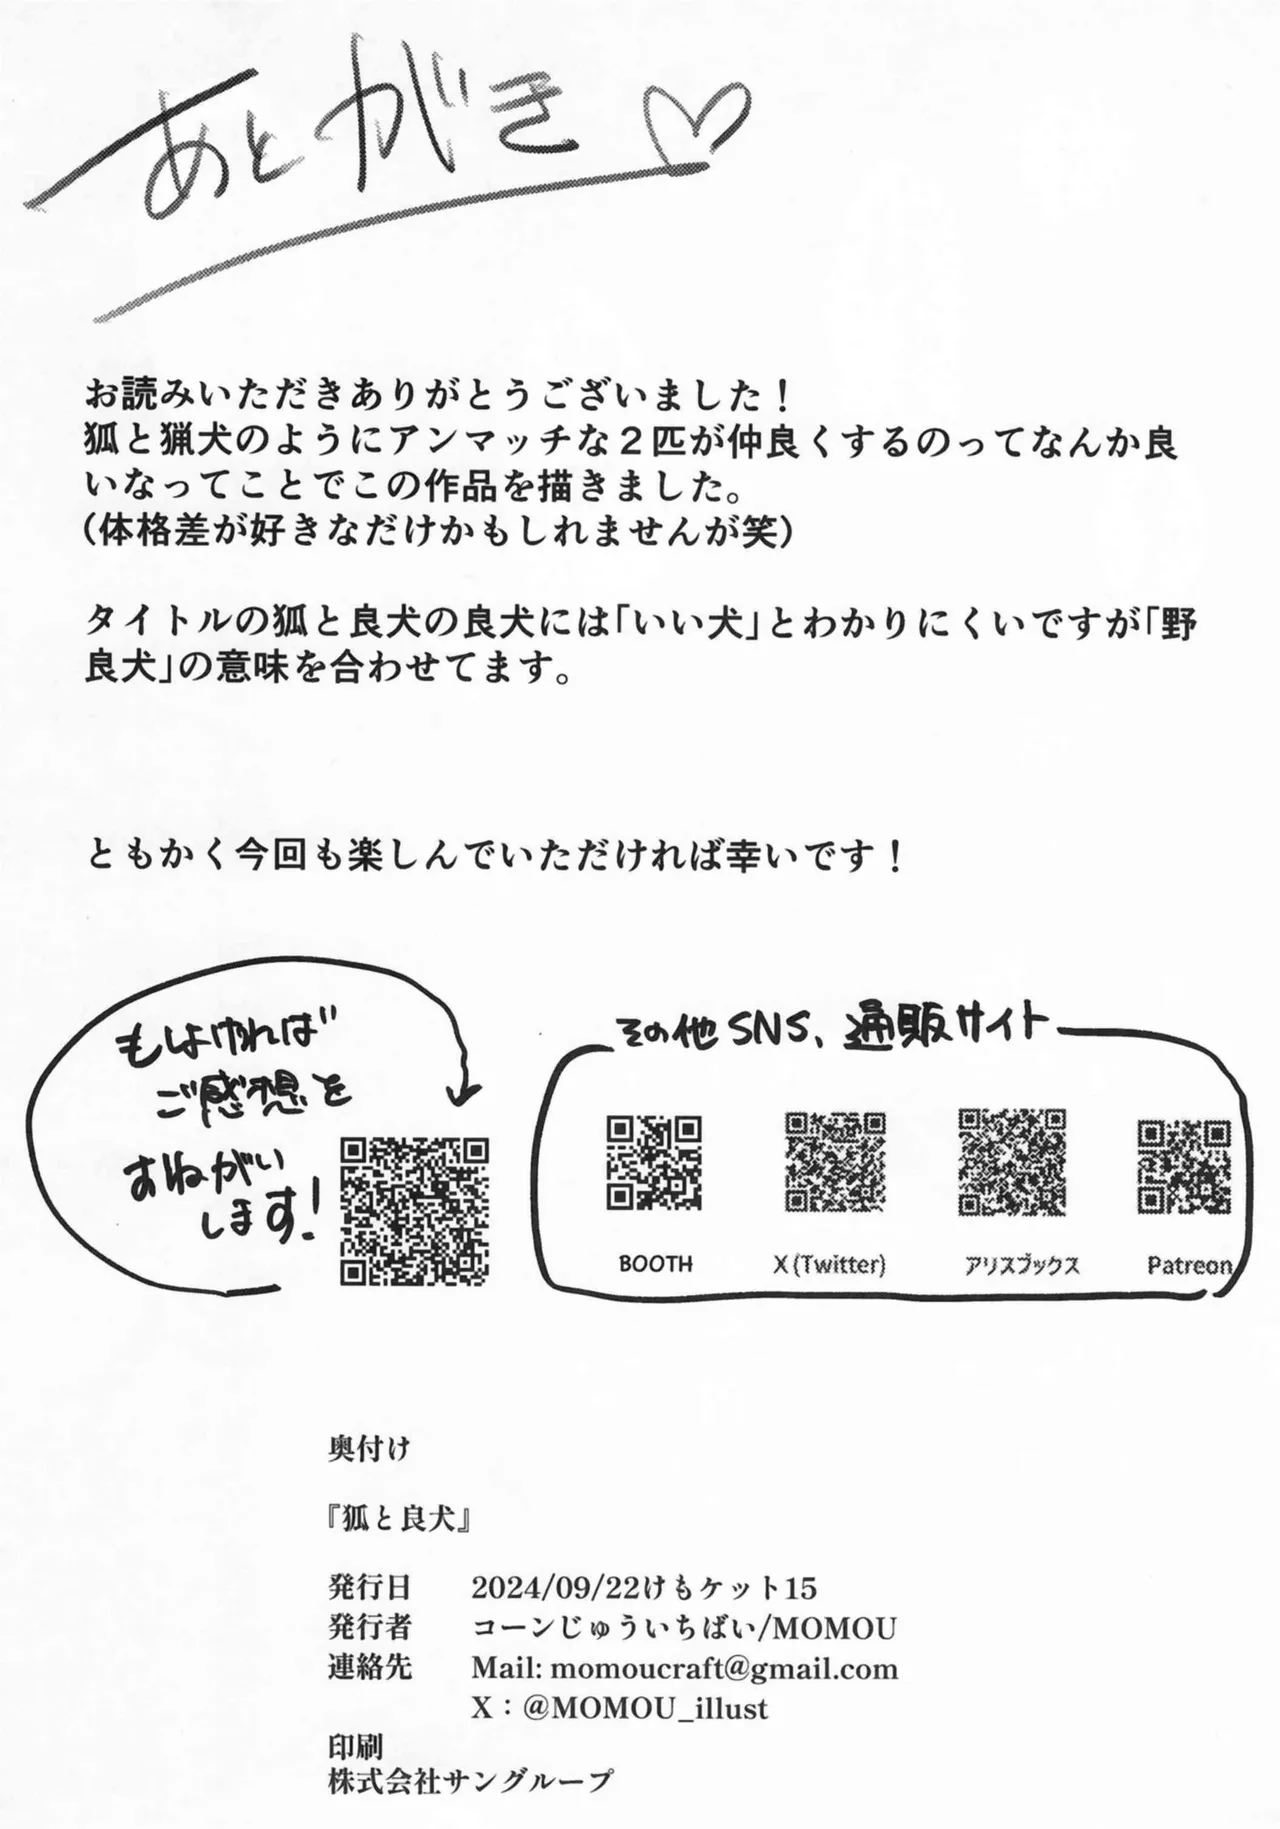 あとがき♡
お読みいただきありがとうございました！
狐と猟犬のようにアンマッチな２匹が仲良くするのってなんか良
いなってことでこの作品を描きました。
(体格差が好きなだけかもしれませんが笑)
タイトルの狐と良犬の良犬には｢いい犬｣とわかりにくいですが｢野
良犬｣の意味を合わせてます。
ともかく今回も楽しんでいただければ幸いです！
もしよければ
ご感想を
おねがい
します！
その他SNS、通販サイト
BOOTH
X (Twitter)
アリスブックス
Patreon
奥付け
『狐と良犬』
発行日 2024/09/22けもケット15
発行者 コーンじゅういちばい/MOMOU
連絡先 Mail: momoucraft@gmail.com
X：@MOMOU_illust
印刷
株式会社サングループ